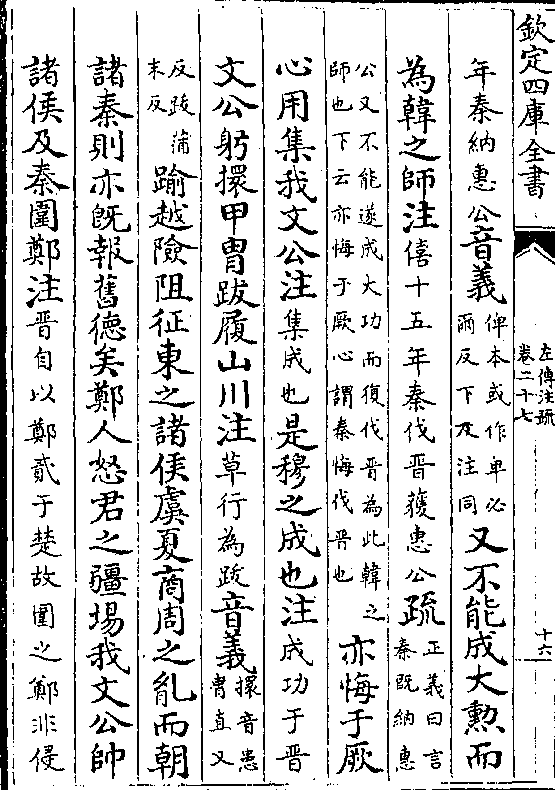 欽定四庫全書
左傳注疏
卷二十七
十六
年秦納惠公音義俾本或作卑必
爾反下及注同又不能成大勲而
為韓之師注僖十五年秦伐晉獲惠公疏正義曰言
秦既納惠
公又不能遂成大功而復伐晉為此韓之
師也下云亦悔于厥心謂秦悔伐晉也亦悔于厥
心用集我文公注集成也是穆之成也注成功于晉
文公躬擐甲胄跋履山川注草行為跋音義擐音患
胄直又
反跋蒲
末反踰越險阻征東之諸侯虞夏商周之亂而朝
諸秦則亦既報舊德矣鄭人怒君之疆埸我文公帥
諸侯及秦圍鄭注晉自以鄭貳于楚故圍之鄭非侵